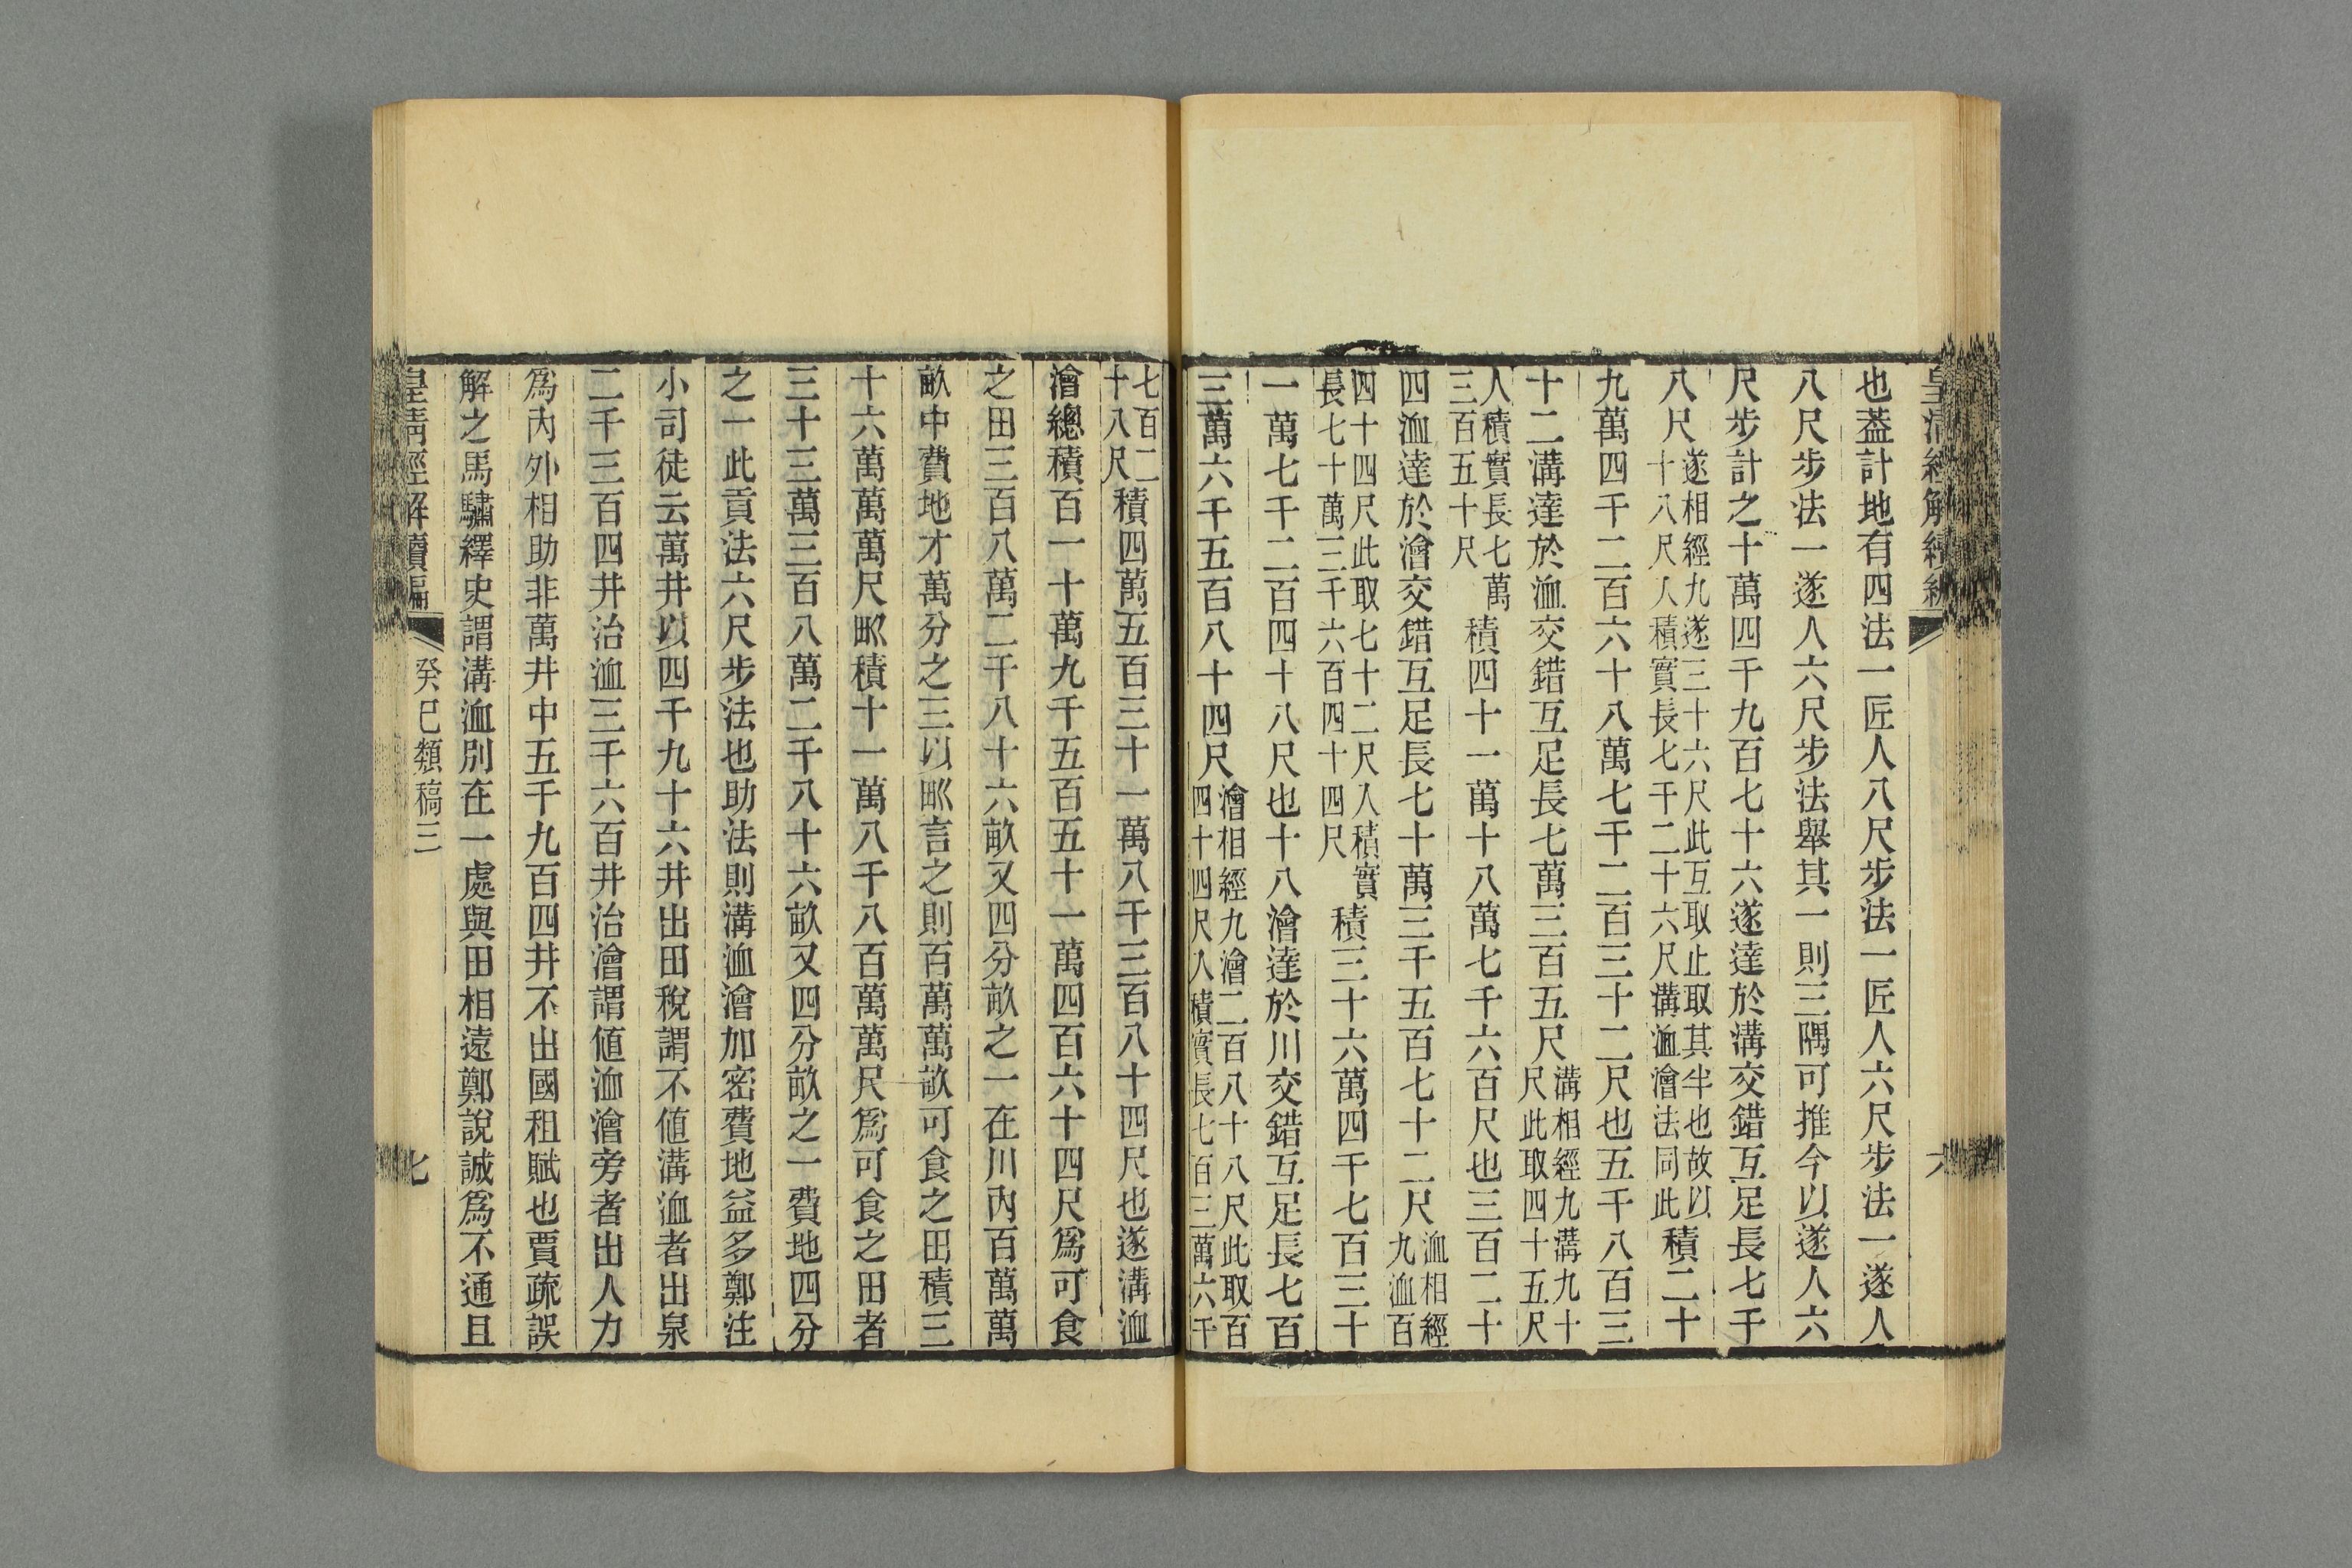 皇清經解續編
六
也葢計地有四法一匠人八尺步法一匠人六尺步法一遂人
八尺步法一遂人六尺步法舉其一則三隅可推今以遂人六
尺步計之十萬四千九百七十六遂達於溝交錯互足長七千
八尺遂相經九遂三十六尺此互取止取其半也故以
十八尺人積實長七千二十六尺溝洫澮法同此積二十
九萬四千二百六十八萬七千二百三十二尺也五千八百三
十二溝達於洫交錯互足長七萬三百五尺溝相經九溝九十
尺此取四十五尺
人積實長七萬
三百五十尺積四十一萬十八萬七千六百尺也三百二十
四洫達於澮交錯互足長七十萬三千五百七十二尺洫相經
九洫百
四十四尺此取七十二尺人積實
長七十萬三千六百四十四尺積三十六萬四千七百三十
一萬七千二百四十八尺也十八澮達於川交錯互足長七百
三萬六千五百八十四尺澮相經九澮二百八十八尺此取百
四十四尺人積實長七百三萬六千
七百二
十八尺積四萬五百三十一萬八千三百八十四尺也遂溝洫
澮總積百一十萬九千五百五十一萬四百六十四尺爲可食
之田三百八萬二千八十六畝又四分畝之一在川內百萬萬
畝中費地才萬分之三以畝言之則百萬萬畝可食之田積三
十六萬萬萬尺畝積十一萬八千八百萬萬尺爲可食之田者
三十三萬三百八萬二千八十六畝又四分畝之一費地四分
之一此貢法六尺步法也助法則溝洫澮加密費地益多鄭注
小司徒云萬井以四千九十六井出田稅謂不値溝洫者出泉
二千三百四井治洫三千六百井治澮謂値洫澮旁者出人力
爲內外相助非萬井中五千九百四井不出國租賦也賈疏誤
解之馬驌繹史謂溝洫別在一處與田相遠鄭說誠爲不通且
皇清經解續編
癸巳類稿三
七